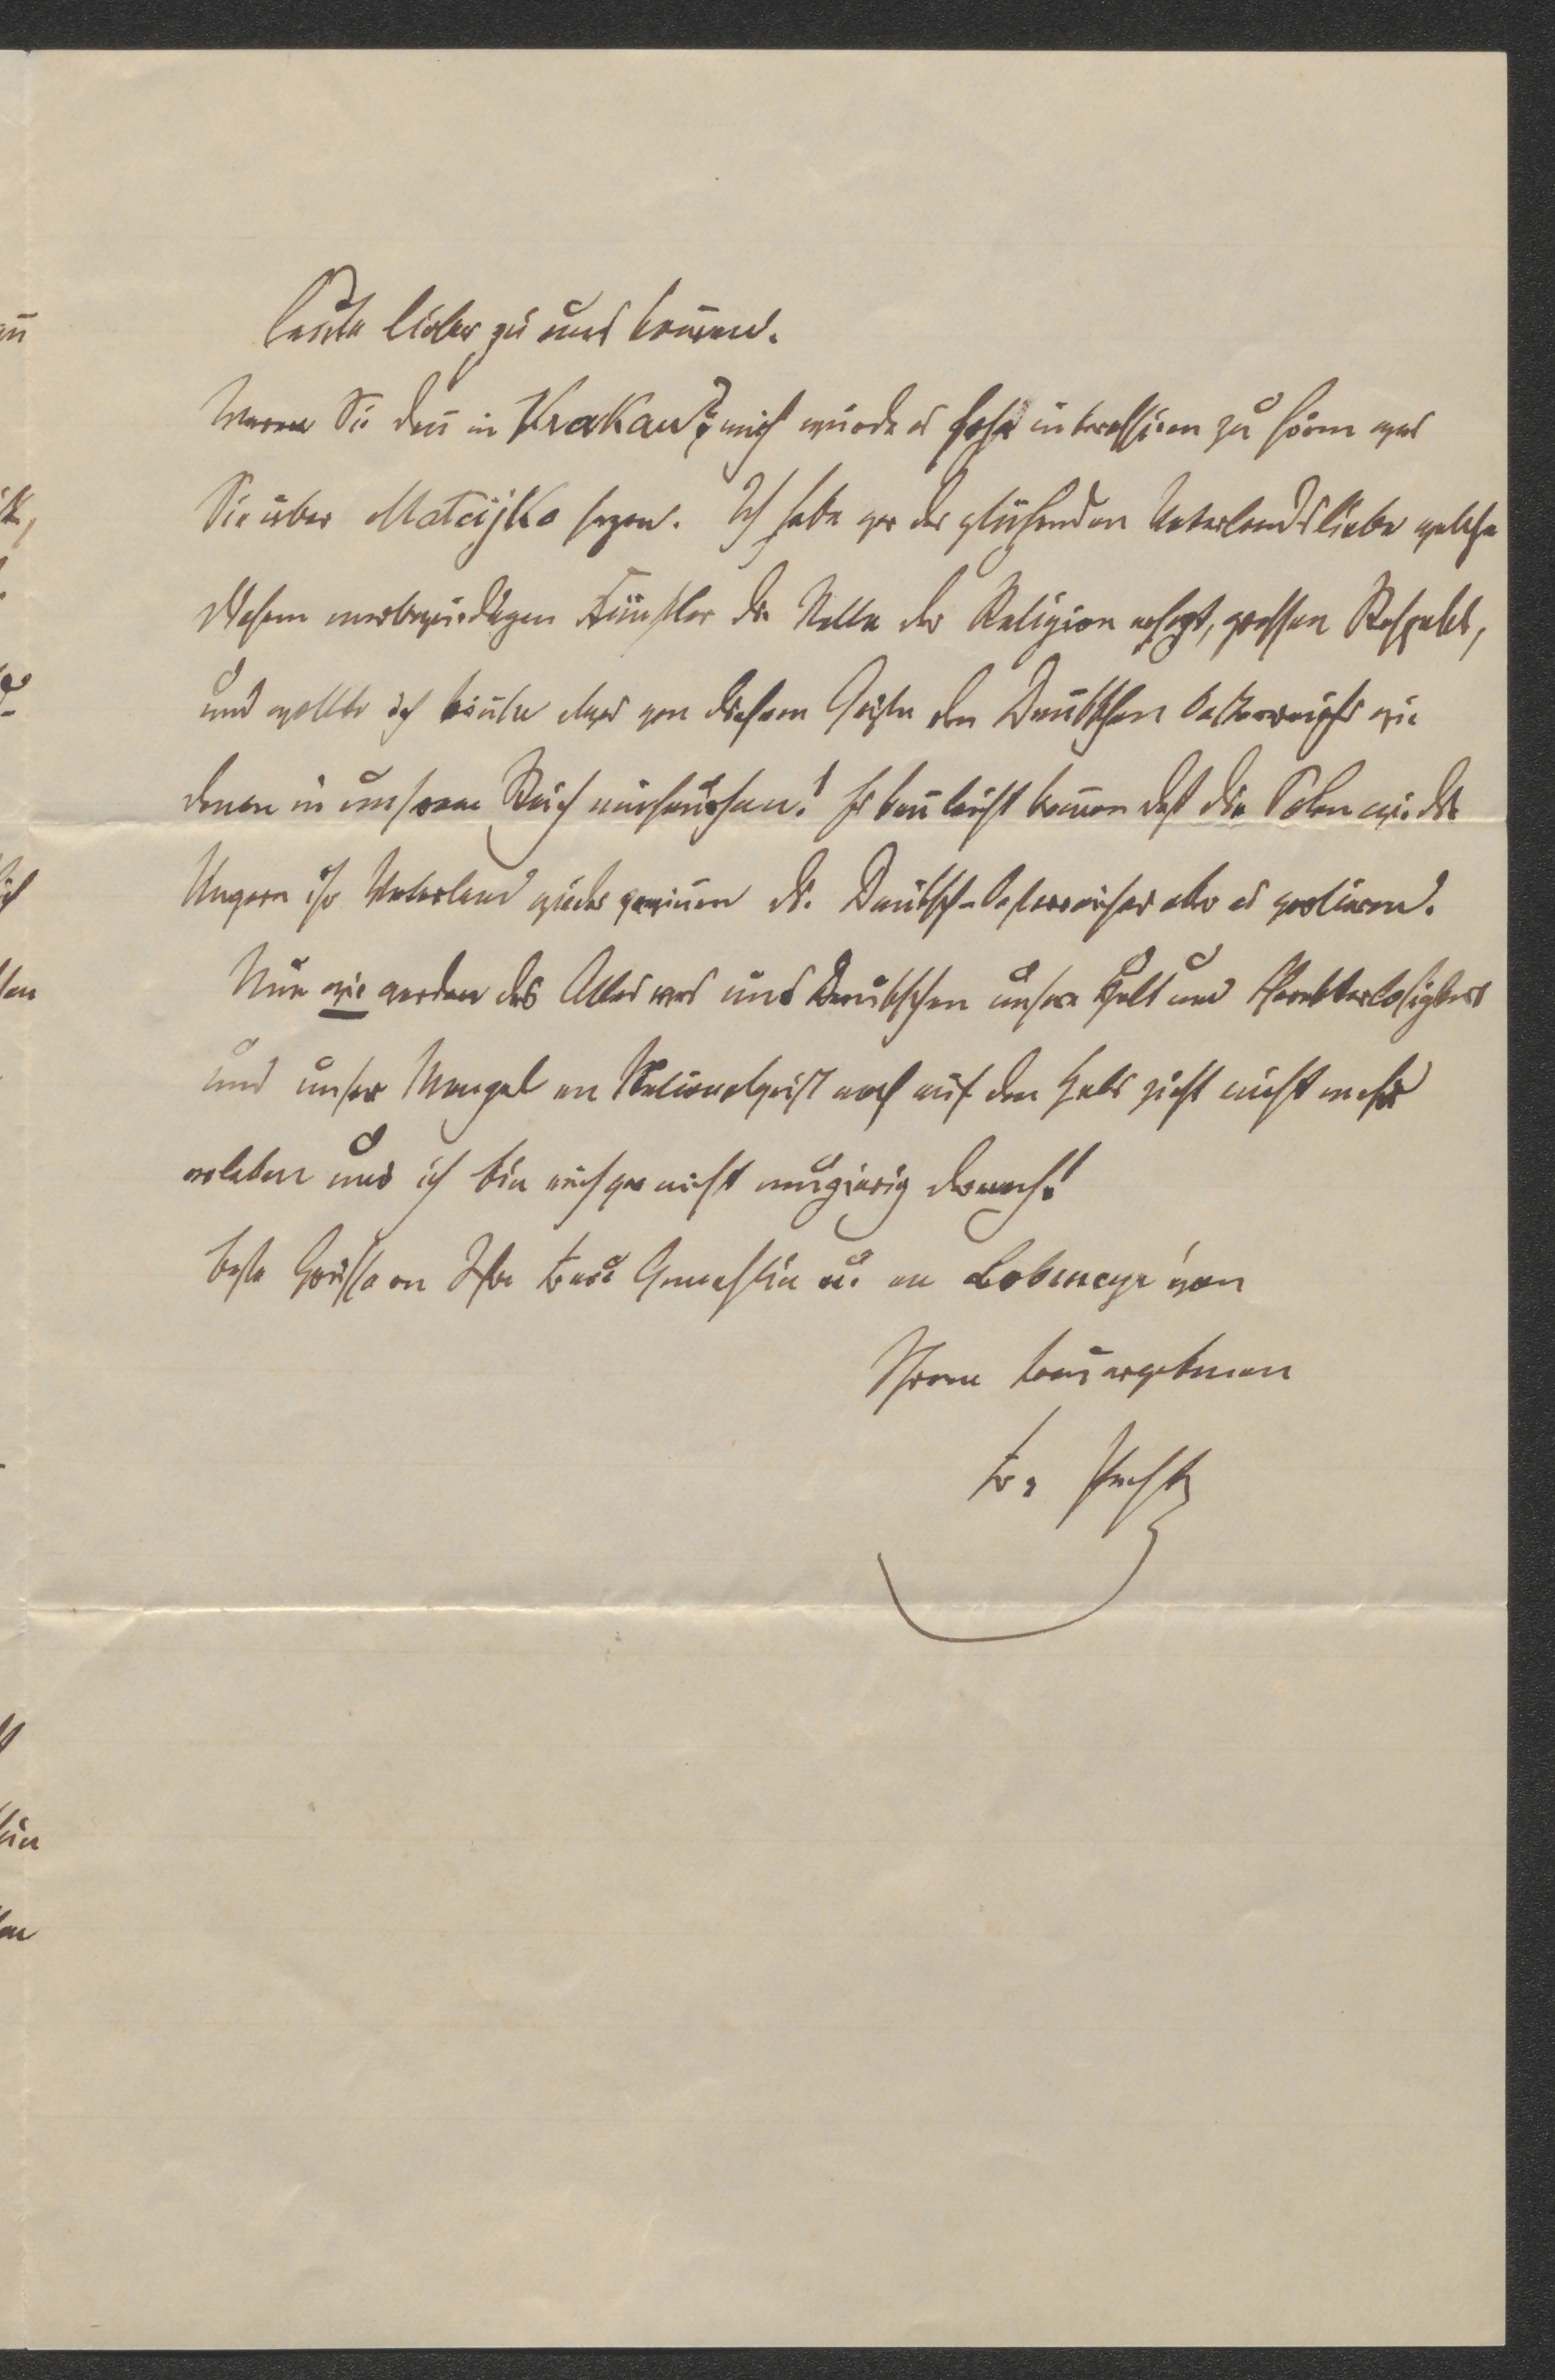 Leute lieber zu uns kom̅en.
Waren Sie den̅ in Krakau? mich würde es sehr interessiren zu hören was
Sie über Matejko sagen. Ich habe vor der glühenden Vaterlandsliebe welche
diesem merkwürdigen Künstler die Stelle der Religion ersetzt, grossen Respekt,
und wollte ich kön̅te etwas von diesem Geiste den Deutschen Oesterreichs wie
denen in unserem Reich einhauchen! Es kan̅ leicht kom̅en daß die Polen wie die
Ungarn ihr Vaterland wieder gewin̅en die Deutsch-Oesterreicher aber es verlieren.
Nun wir werden das Alles was uns Deutschen unsere und Charakterlosigkeit
und unser Mangel an Nationalgeist noch auf den Hals zieht nicht mehr
erleben und ich bin auch gar nicht neugierig darnach!
Beste Grüsse an Ihre Frau Gemahlin u. an Lobmeyr von
Ihrem treuergebenen
Fr. Pecht